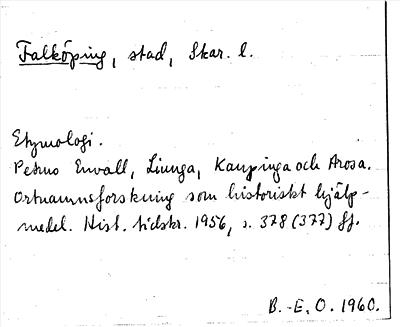 Falköping, stad, Skar. l.
Etymologi.
Petrus Envall, Liunga, Kaupinga och Arosa.
Ortnamnsforskning som historiskt hjälp-
medel. Hist. tidskr. 1956, s. 378 (377) ff.
B.-E. O. 1960.